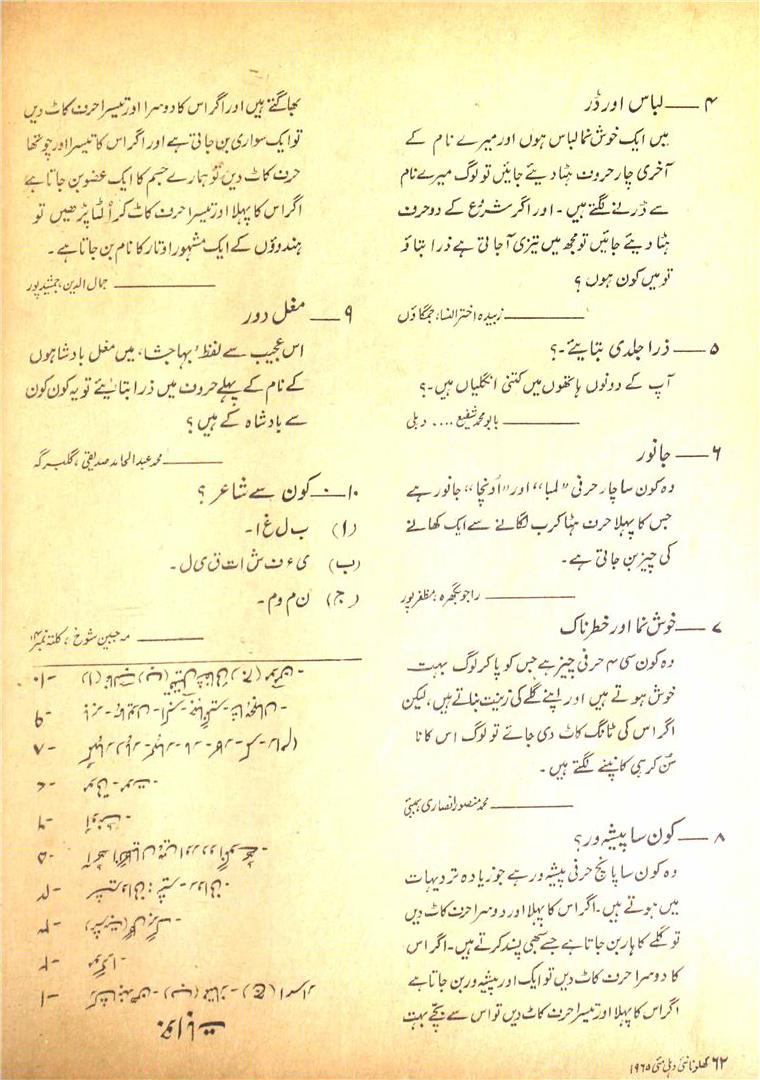 ۴ — لباس اور ڈر
میں ایک خوش نما لباس ہوں اور میرے نام کے
آخری چار حروف ہٹا دیئے جائیں تو لوگ میرے نام
سے ڈرنے لگتے ہیں۔ اور اگر شروع کے دو حرف
ہٹا دیئے جائیں تو مجھ میں تیزی آ جاتی ہے ذرا بتاؤ
تو میں کون ہوں؟
— زبیدہ اختر النساء، جمگاؤں
۵ — ذرا جلدی بتایئے۔؟
آپ کے دونوں ہاتھوں میں کتنی انگلیاں ہیں۔؟
— بابو محمد شفیع .... دہلی
۶ — جانور
وہ کون سا چار حرفی "لمبا" اور "اونچا" جانور ہے
جس کا پہلا حرف ہٹا کر ب لگانے سے ایک کھانے
کی چیز بن جاتی ہے۔
— راجو بگھرہ، مظفرپور
۷ — خوش نما اور خطرناک
وہ کون سی ۴ حرفی چیز ہے جس کو پا کر لوگ بہت
خوش ہوتے ہیں اور اپنے گلے کی زینت بناتے ہیں، لیکن
اگر اس کی ٹانگ کاٹ دی جائے تو لوگ اس کا نا
سن کر ہی کانپنے لگتے ہیں۔
— محمد منصور انصاری بمبئی
۸ — کون سا پیشہ ور؟
وہ کون سا پانچ حرفی پیشہ ور ہے جو زیادہ تر دیہات
میں ہوتے ہیں۔ اگر اس کا پہلا اور دوسرا حرف کاٹ دیں
تو گلے کا ہار بن جاتا ہے جسے سبھی پسند کرتے ہیں۔ اگر اس
کا دوسرا حرف کاٹ دیں تو ایک اور پیشہ ور بن جاتا ہے
اگر اس کا پہلا اور تیسرا حرف کاٹ دیں تو اس سے بچے بہت
بھاگتے ہیں اور اگر اس کا دوسرا اور تیسرا حرف کاٹ دیں
تو ایک سواری بن جاتی ہے اور اگر اس کا تیسرا اور چوتھا
حرف کاٹ دیں تو ہمارے جسم کا ایک عضو بن جاتا ہے
اگر اس کا پہلا اور تیسرا حرف کاٹ کر اُلٹا پڑھیں تو
ہندوؤں کے ایک مشہور اوتار کا نام بن جاتا ہے۔
— جمال الدین، جمشید پور
۹ — مغل دور
اس عجیب سے لفظ "بہاجشا" میں مغل بادشاہوں
کے نام کے پہلے حروف میں ذرا بتایئے تو یہ کون کون
سے بادشاہ کے ہیں؟
— محمد عبدالحامد صدیقی، گلبرگہ
۱۰ — کون سے شاعر؟
(ا) ب ل غ ا۔
(ب) ی ء ف ش ا ت ق ی ل۔
(ج) ن م و م۔
— مہ جبیں شوخ، کلکتہ نمبر ۱۴
جوابات
۲- موگرا۔
۵- آٹھ انگلیاں ہیں اور دو انگوٹھے۔
۶- اونٹ۔
۷- موتی۔ موت۔
۱۰- (ا) غالب (ب) قتیل شفائی (ج) مومن۔
۶۲ کھلونا نئی دہلی مئی ۱۹۶۵